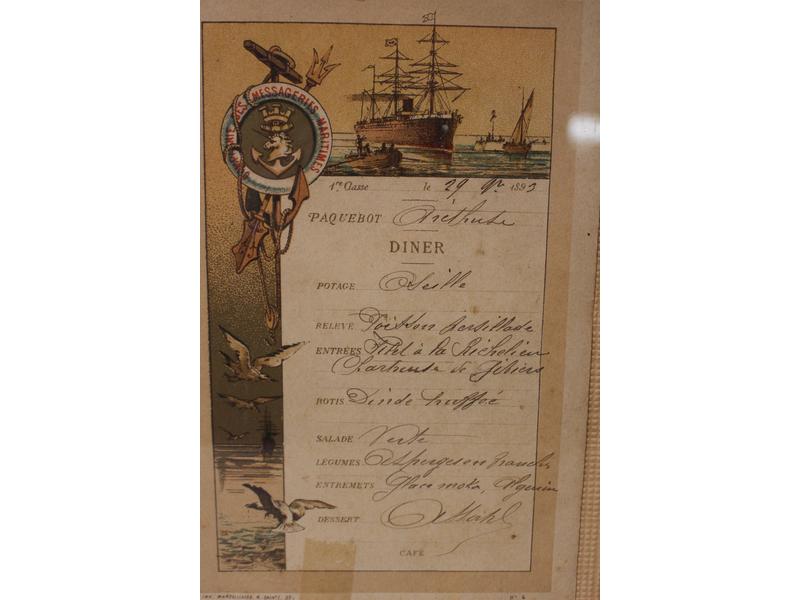 COMPAGNIE DES MESSAGERIES MARITIMES
1re Classe le 29 9re 1893
PAQUEBOT Aréthuse
DINER
POTAGE Oseille
RELEVÉ Poisson persillade
ENTRÉES Filet à la Richelieu
Chartreuse de Gibiers
ROTIS Dinde truffée
SALADE Verte
LÉGUMES Asperges en branches
ENTREMETS Glace moka,
DESSERT
CAFÉ
IMP. MARSEILLAISE
N° 4